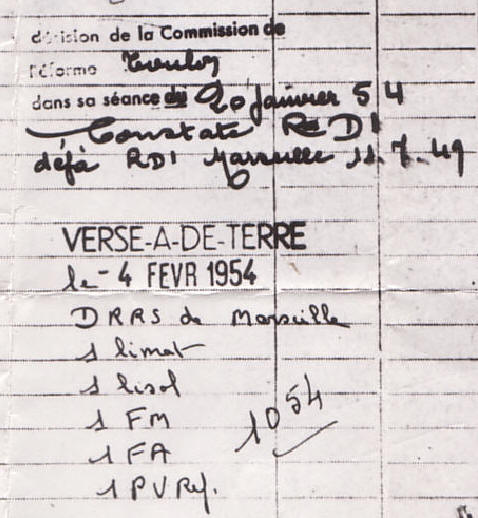 décision de la Commission de
réforme Toulon
dans sa séance du 20 Janvier 54
Constate RDI
déjà RDI Marseille 11.7.49
VERSE-A-DE-TERRE
le - 4 FEVR 1954
DRRS de Marseille
1 limat
1 lisol
1 FM
1 FA
1 PV Ref.
10 54